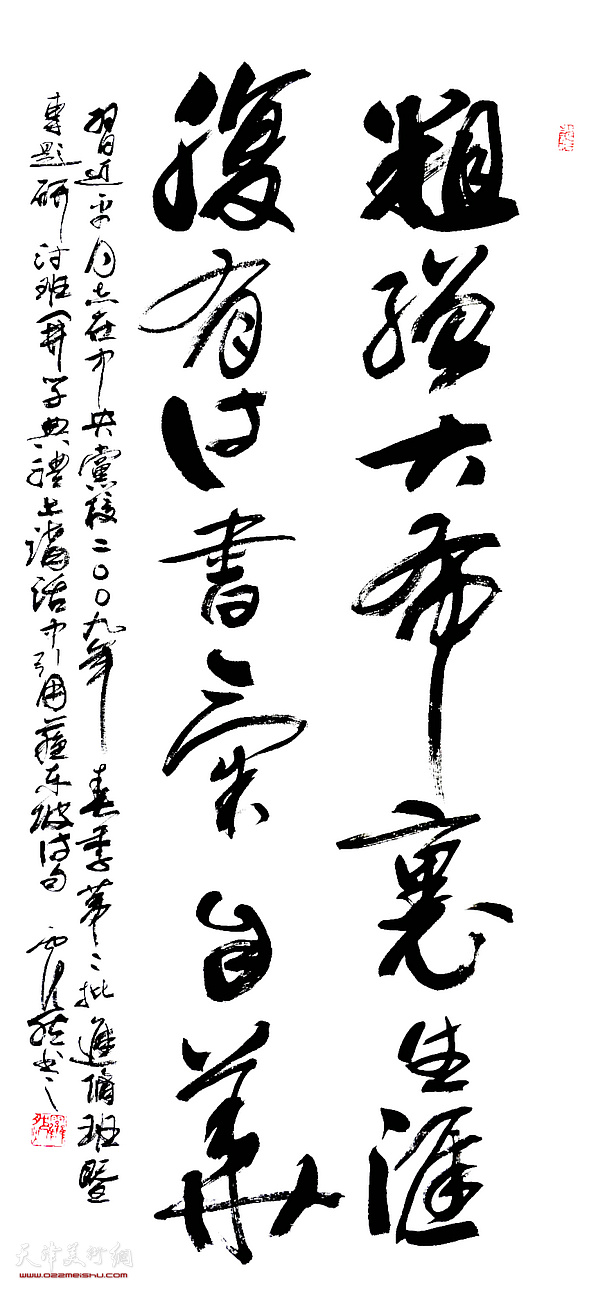 粗繒大布裹生涯
腹有诗書氣自華
習近平同志在中央黨校二〇〇九年春季第二批進脩班暨
專题研讨班開学典禮上講话中引用蘇东坡诗句
天津美术網
www.022meishu.com